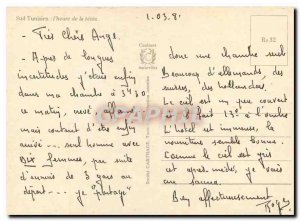 Sud Tunisien : l'heure de la sieste
1.03.81
Re 52
- Très Chers Angs.
- Après de longues
incertitudes j'étais enfin
dans ma chambre à 3h30
ce matin,
mais content d'être enfin
arrivé... seul homme avec
DIX femmes, par suite
d'ennuis de 3 gars au
départ.... je "partage"
donc une chambre seul
Beaucoup d'allemands, des
suisses, des hollandais.
Le ciel est un peu couvert
13° à l'ombre
L'hôtel est immense, la
nourriture semble bonne.
Comme le ciel est gris
cet après-midi, je vais
au sauna.
Bien affectueusement
CARTHAGE